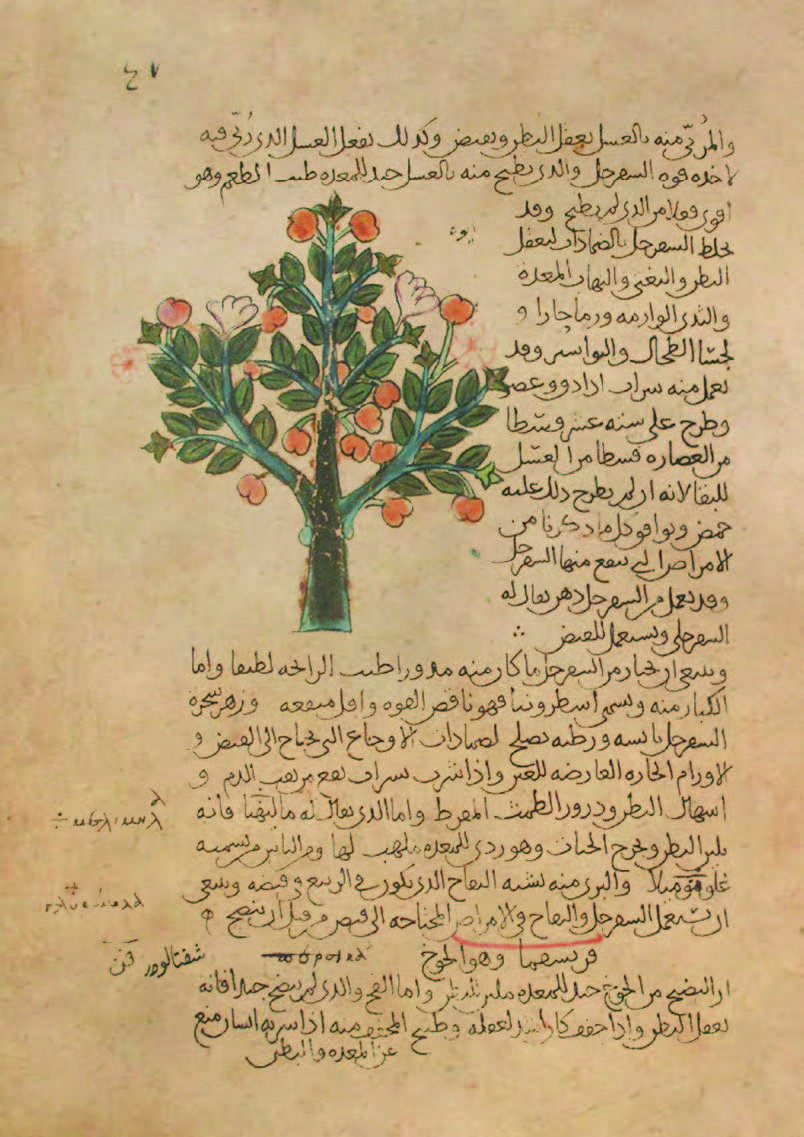 ٤٧
والمربى منه بالعسل يعقل البطن ويقبض وكذلك يفعل العسل الذي ربي فيه
لاخذه قوه السفرجل والذي يطبخ منه بالعسل جيد للمعده طيب المطعم وهو
اقوى فعلا من الذي لم يطبخ وقد
يخلط السفرجل بالضمادات لتعقل
البطن والتهاب المعده
والثدي الوارمه ورما حارا و
لجسا الطحال والبواسير وقد
يعمل منه شراب اذا دق وعصر
وطرح على سته عشر قسطا
من العصاره قسطا من العسل
للبقا لانه ان لم يطرح ذلك عليه
حمض ويوافق كل ما ذكرنا من
الامراض التي ينفع منها السفرجل
وقد يعمل من السفرجل دهن يقال له
السفرجلي ويستعمل للقبض
وينبغي ان يختار من السفرجل ما كان منه مدورا طيب الرائحه لطيفا واما
الكبار منه ويسمى اسطرونيا فهو ناقص القوه واقل منفعه وزهر شجره
السفرجل يابسه ورطبه يصلح لضمادات الاوجاع التي تحتاج الى القبض و
الاورام الحاره العارضه للعين واذا شرب بشراب نفع من نفث الدم و
اسهال البطن ودرور الطمث المفرط واما الذي يقال له فانه
يلين البطن ويخرج الحيات وهو ردي للمعده ملهب لها ومن الناس من يسميه
والبري منه يشبه التفاح الذي يكون في الربيع وقبضه وينبغي
ان تستعمل السفرجل والتفاح في الامراض المحتاجه الى قبض من قبل ان ينضج
فرسيما وهو الخوخ
شفتالو
ان النضيج من الخوخ جيد للمعده ملين للبطن واما الفج والذي لم ينضج جيدا فانه
يعقل البطن واذا جفف كان اشد لعقله وطبيخ المجفف منه اذا شربه انسان منع
عن المعده والبطن